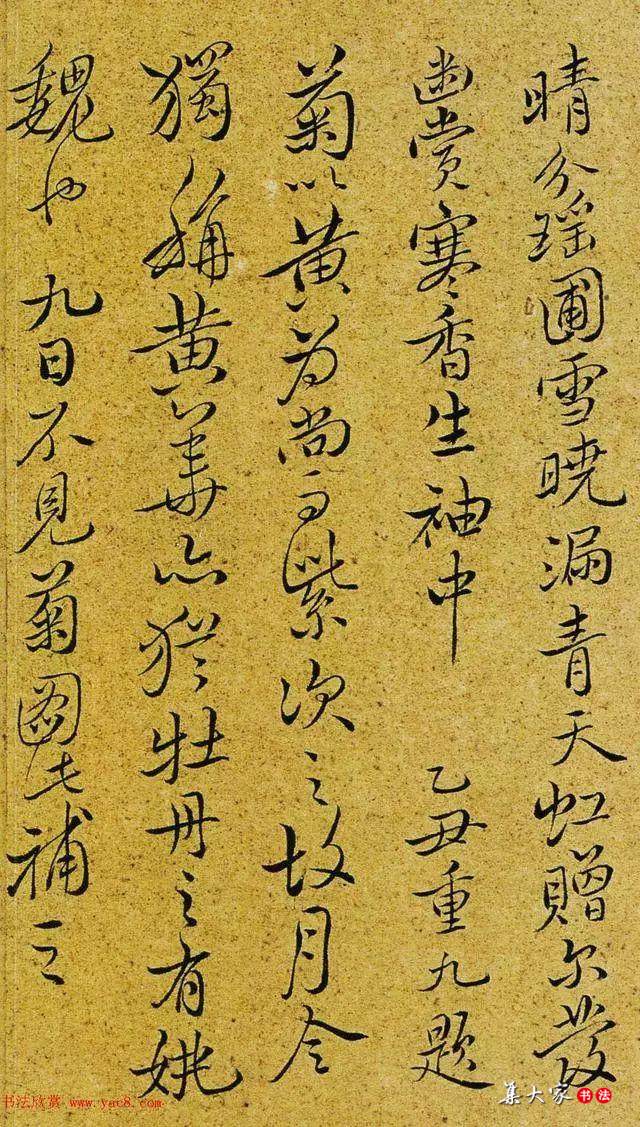 晴分瑶圃雪曉漏青天虹贈尔發
幽賞寒香生袖中 乙丑重九題
菊以黄為尚而紫次之故月令
獨稱黄華亦猶牡丹之有姚
魏也 九日不見菊圖此補之
书法欣赏 www.yac8.com
集大家 书法